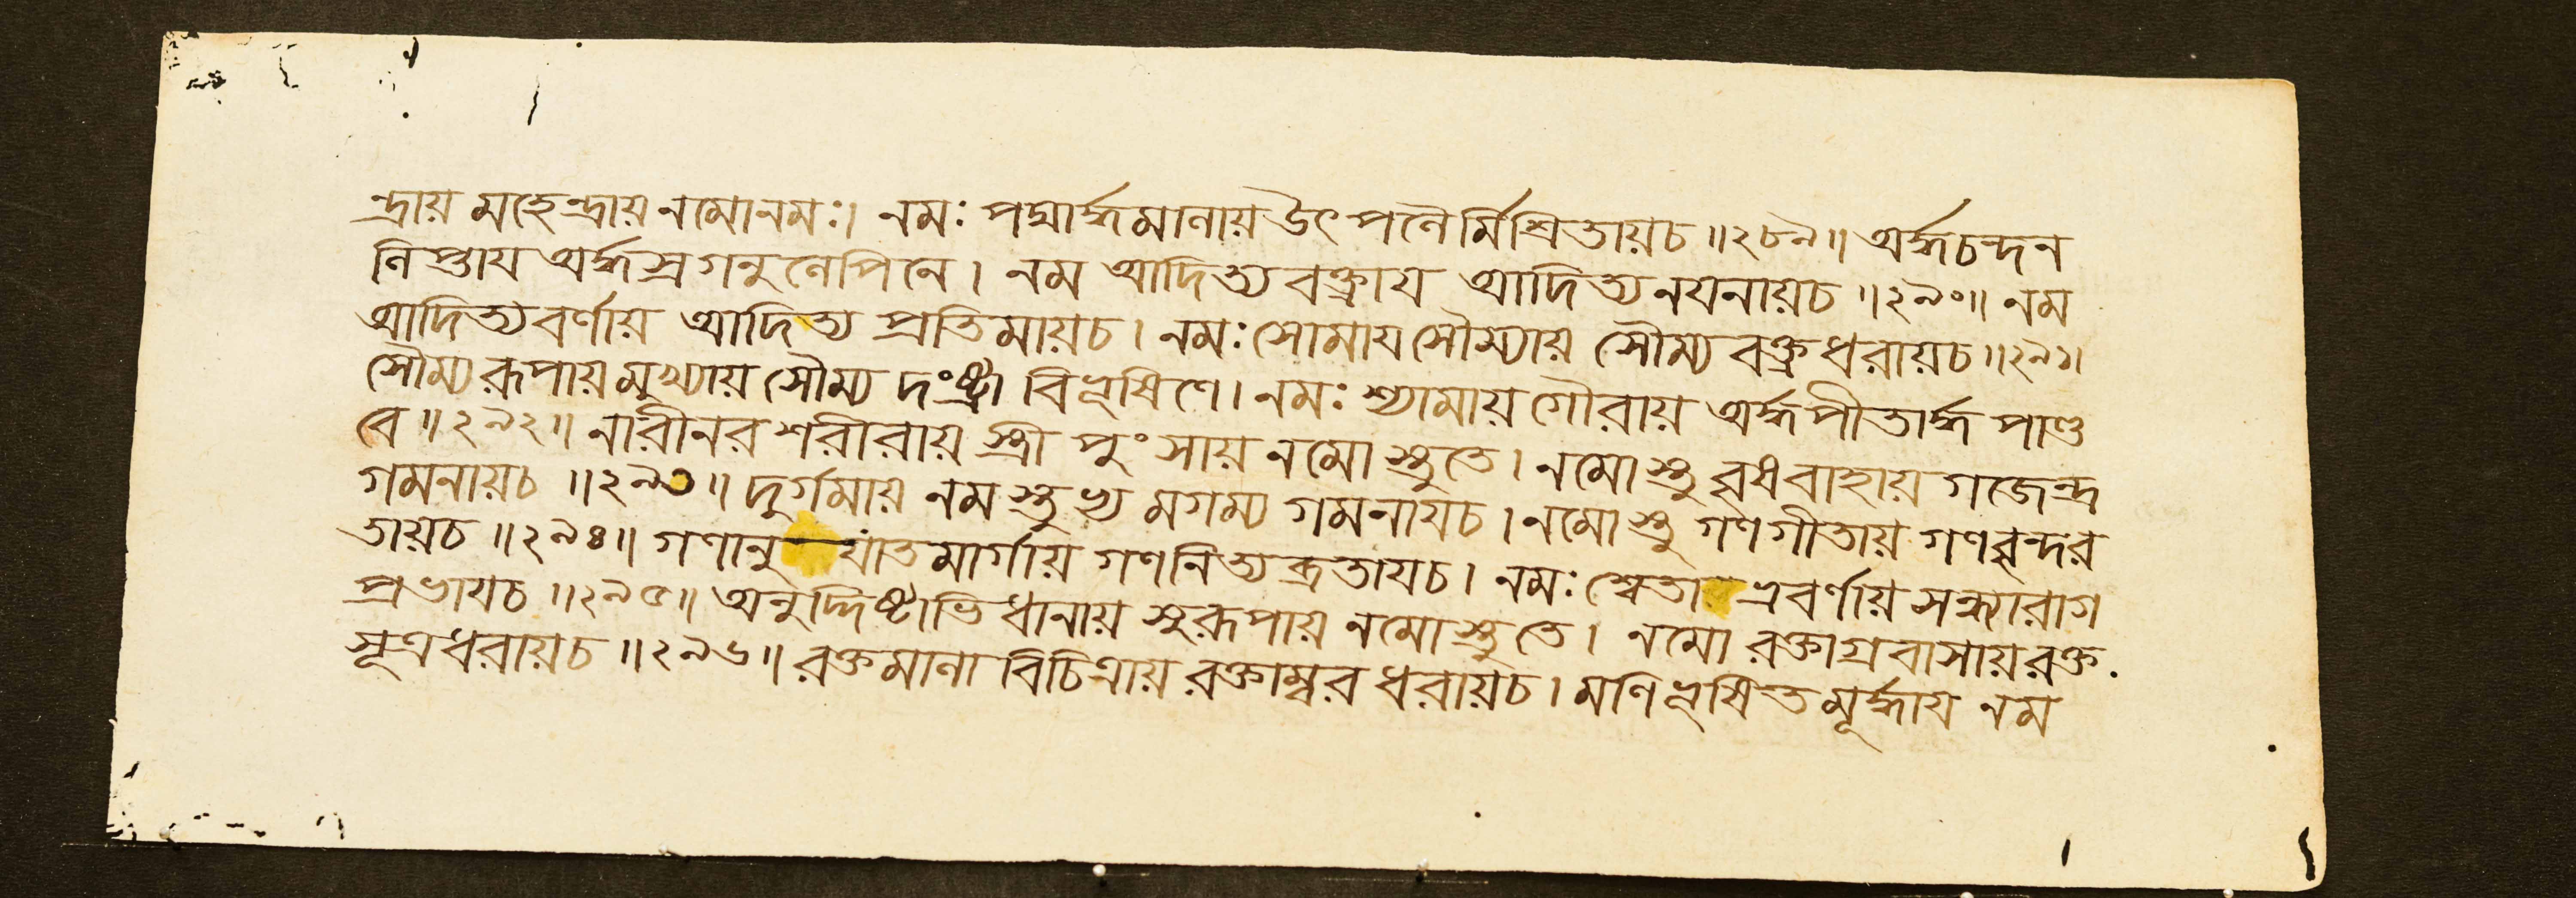 ন্দ্রায় মহেন্দ্রায় নমোনমঃ। নমঃ পদ্মার্দ্ধমালায় উৎপলৈর্মিশ্রিতায়চ ॥২৮৯॥ অর্দ্ধচন্দন
লিপ্তায অর্দ্ধস্রগনুলেপিনে। নম আদিত্যবক্ত্রায আদিত্যনযনায়চ ॥২৯০॥ নম
আদিত্যবর্ণায় আদিত্য প্রতিমায়চ। নমঃ সোমায সৌম্যায় সৌম্য বক্ত্রধরায়চ ॥২৯১॥
সৌম্যরূপায় মুখ্যায় সৌম্য দংষ্ট্রা বিভূষিণে। নমঃ শ্যামায় গৌরায় অর্দ্ধপীতার্দ্ধ পাণ্ড
বে ॥২৯২॥ নারীনর শরীরায় স্ত্রী পুংসায় নমোস্তুতে। নমোস্তু বৃষবাহায় গজেন্দ্র
গমনায়চ ॥২৯৩॥ দুর্গমায় নমস্তুভ্য মগম্য গমনাযচ। নমোস্তু গণগীতায় গণবৃন্দর
তায়চ ॥২৯৪॥ গণানু যাতমার্গায় গণনিত্যব্রতাযচ। নমঃ শ্বেতা ভ্রবর্ণায় সন্ধ্যারাগ
প্রভাযচ ॥২৯৫॥ অনুদ্দিষ্টাভিধানায় সুরূপায় নমোস্তুতে। নমো রক্তাগ্রবাসায় রক্ত
সূত্রধরায়চ ॥২৯৬॥ রক্তমালা বিচিত্রায় রক্তাম্বর ধরায়চ। মণিভূষিতমূর্দ্ধায নম